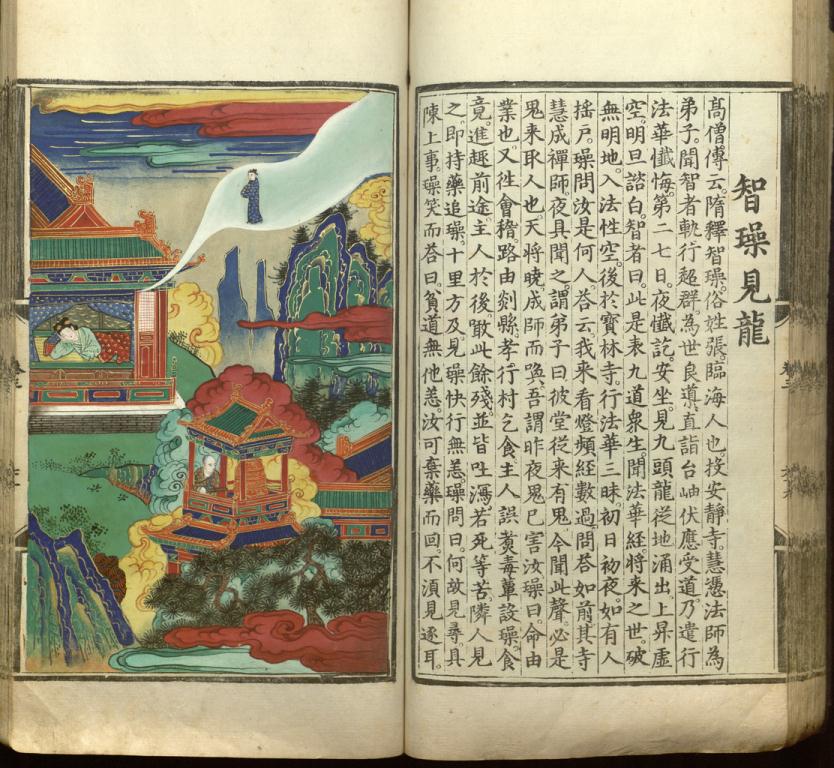 智璪見龍
高僧傳云。隋釋智璪。俗姓張。臨海人也。投安靜寺。慧憑法師為
弟子。聞智者軌行超群。為世良導。直詣台岫。伏應受道。乃遣行
法華懺悔。第二七日。夜懺訖。安坐。見九頭龍。從地涌出。上昇虛
空。明旦諮白。智者曰。此是表九道衆生。聞法華經。將來之世。破
無明地。入法性空。後於寶林寺。行法華三昧。初日初夜。如有人
搖戶。璪問汝是何人。答云我來看燈。頻經數過。問答如前。其寺
慧成禪師。夜具聞之。謂弟子曰彼堂從來有鬼。今聞此聲。必是
鬼來取人也。天將曉。成師而喚。吾謂昨夜鬼已害汝。璪曰。命由
業也。又往會稽。路由剡縣。孝行村乞食。主人誤煑毒蕈設璪。食
竟。進趣前途。主人於後。散此餘殘。並皆吐瀉若死等苦。隣人見
之。即持藥追璪。十里方及。見璪快行無恙。璪問曰。何故見尋。具
陳上事。璪笑而答曰。貧道無他恙。汝可棄藥而回。不須見逐耳。